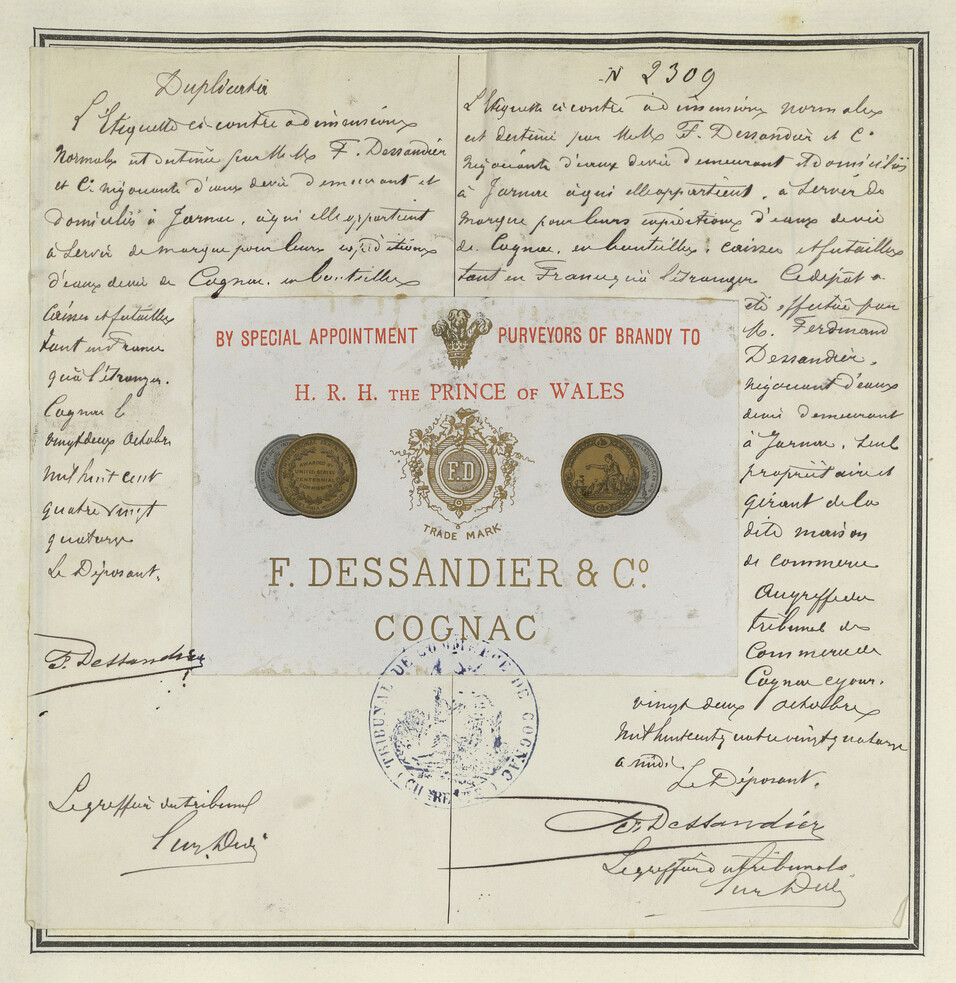 Duplicata
L'Etiquette ci contre à dimensions
normales est destinée par M.M. F. Dessandier
et Cie négociants d'eaux devie demeurant et
domiciliés à Jarnac, à qui elle appartient
à servir de marque pour leurs expéditions
d'eaux devie de Cognac, en bouteilles
Caisses et futailles
tant en France
qu'à l'étranger.
Cognac le
vingt deux Octobre
mil huit cent
quatre vingt
quatorze
Le Déposant.
F. Dessandier
Le greffier du tribunal
N 2309
L'Etiquette ci contre à dimensions normales
est destiné par M.M. F. Dessandier et Cie
négociants d'eaux devie demeurant et domiciliés
à Jarnac à qui elle appartient, à servir de
marque pour leurs expéditions d'eaux devie
de Cognac, en bouteilles, caisses et futailles
tant en France qu'à l'étranger Ce dépôt a
été effectué par
M. Ferdinand
Dessandier,
négociant d'eaux
devie demeurant
à Jarnac, seul
propriétaire et
gérant de la
dite maison
de commerce
Au greffe du
tribunal de
Commerce de
Cognac ce jour.
vingt deux octobre
mil huit cent quatre vingt quatorze
a midi
Le Déposant.
F. Dessandier
Le greffier du tribunal
BY SPECIAL APPOINTMENT PURVEYORS OF BRANDY TO
H. R. H. THE PRINCE OF WALES
AWARDED BY
UNITED STATES
CENTENNIAL
COMMISSION
F.D
TRADE MARK
F. DESSANDIER & Co.
COGNAC
TRIBUNAL DE COMMERCE DE COGNAC